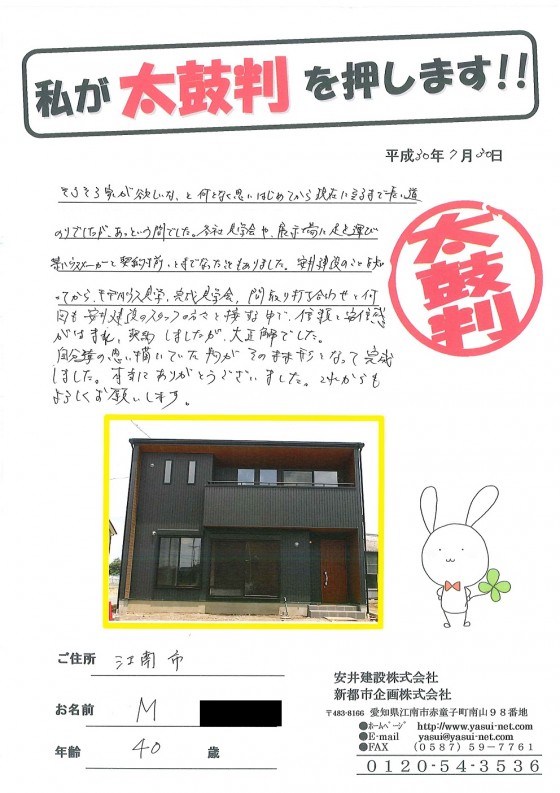 私が太鼓判を押します!!
平成30年7月30日
そろそろ家が欲しいな、と何となく思いはじめてから現在に至るまで長い道
のりでしたが、あっという間でした。各社見学会や、展示場に足を運び
某ハウスメーカーと契約寸前、とまでなったこともありました。安井建設のことを知
ってから、モデルハウス見学、完成見学会、間取り打ち合わせと何
回も安井建設のスタッフのみなさんと接する中で、信頼と安信感
がうまれ、契約しましたが、大正解でした。
自分達の思い描いていた物がそのまま形となって完成
しました。本当にありがとうございました。これからも
よろしくお願いします。
太鼓判
ご住所 江南市
お名前 M
年齢 40 歳
安井建設株式会社
新都市企画株式会社
〒483-8166 愛知県江南市赤童子町南山98番地
●ﾎｰﾑﾍﾟｰｼﾞ http://www.yasui-net.com
●E-mail yasui@yasui-net.com
●FAX (0587)59-7761
0120-54-3536